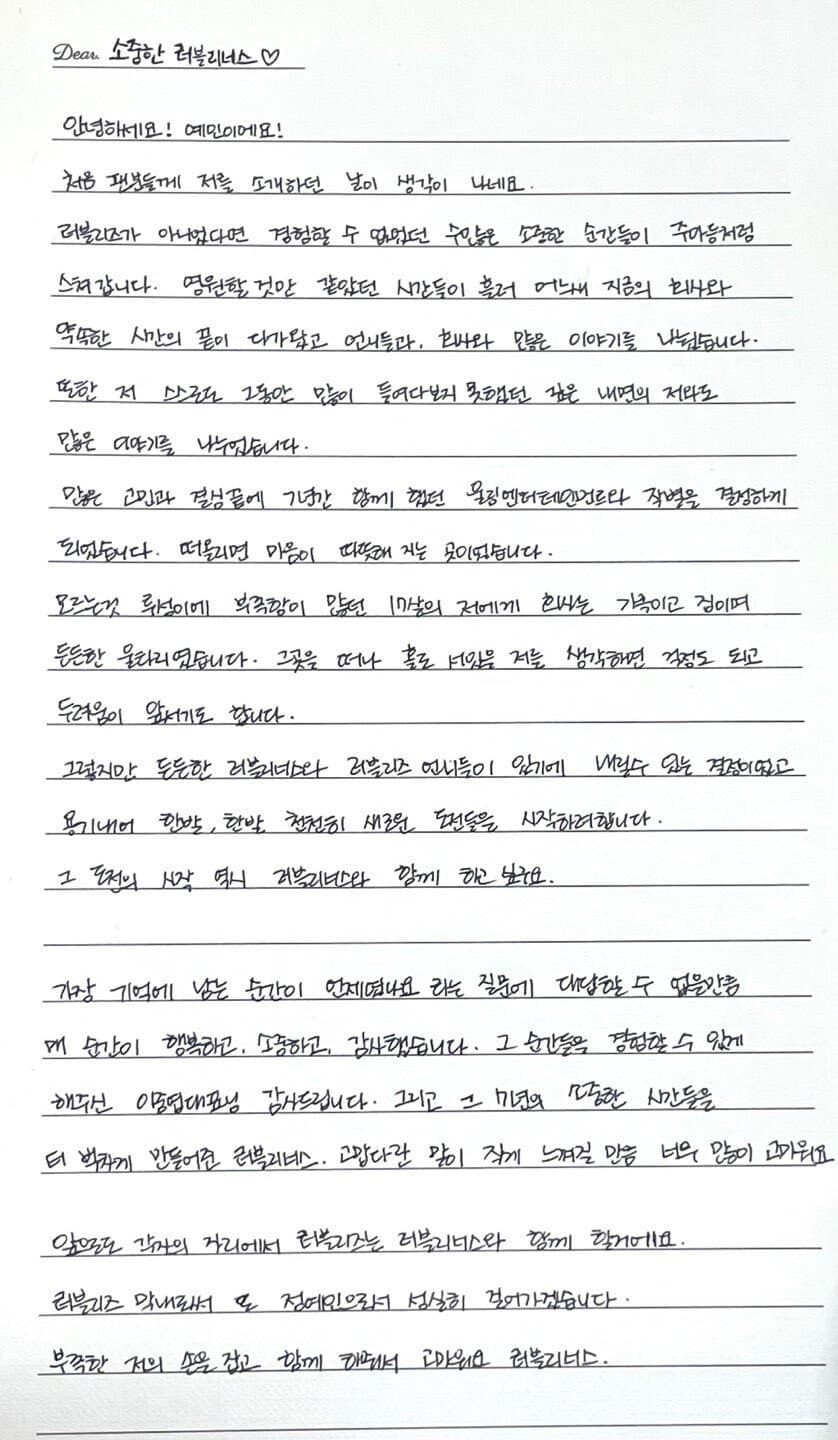 Dear. 소중한 러블리너스♡
안녕하세요! 예인이에요!
처음 팬분들께 저를 소개하던 날이 생각이 나네요.
러블리즈가 아니었다면 경험할 수 없었던 수많은 소중한 순간들이 주마등처럼
스쳐갑니다. 영원할것만 같았던 시간들이 흘러 어느새 지금의 회사와
약속한 시간의 끝이 다가왔고 언니들과, 회사와 많은 이야기를 나눴습니다.
또한 저 스스로도 그동안 많이 들여다보지 못했던 깊은 내면의 저와도
많은 이야기를 나누었습니다.
많은 고민과 결심끝에 7년간 함께 했던 울림엔터테인먼트와 작별을 결정하게
되었습니다. 떠올리면 마음이 따뜻해 지는 곳이었습니다.
모르는것 투성이에 부족함이 많던 17살의 저에게 회사는 가족이고 집이며
든든한 울타리였습니다. 그곳을 떠나 홀로 서있을 저를 생각하면 걱정도 되고
두려움이 앞서기도 합니다.
그렇지만 든든한 러블리너스와 러블리즈 언니들이 있기에 내릴수 있는 결정이었고
용기내어 한발, 한발 천천히 새로운 도전들을 시작하려합니다.
그 도전의 시작 역시 러블리너스와 함께 하고 싶구요.
가장 기억에 남는 순간이 언제였나요 라는 질문에 대답할 수 없을만큼
매 순간이 행복하고, 소중하고, 감사했습니다. 그 순간들을 경험할 수 있게
해주신 이중엽대표님 감사드립니다. 그리고 그 7년의 소중한 시간들을
더 벅차게 만들어준 러블리너스. 고맙다란 말이 작게 느껴질 만큼 너무 많이 고마워요
앞으로도 각자의 자리에서 러블리즈는 러블리너스와 함께 할거에요.
러블리즈 막내로서 또 정예인으로서 성실히 걸어가겠습니다.
부족한 저의 손을 잡고 함께 해줘서 고마워요 러블리너스.